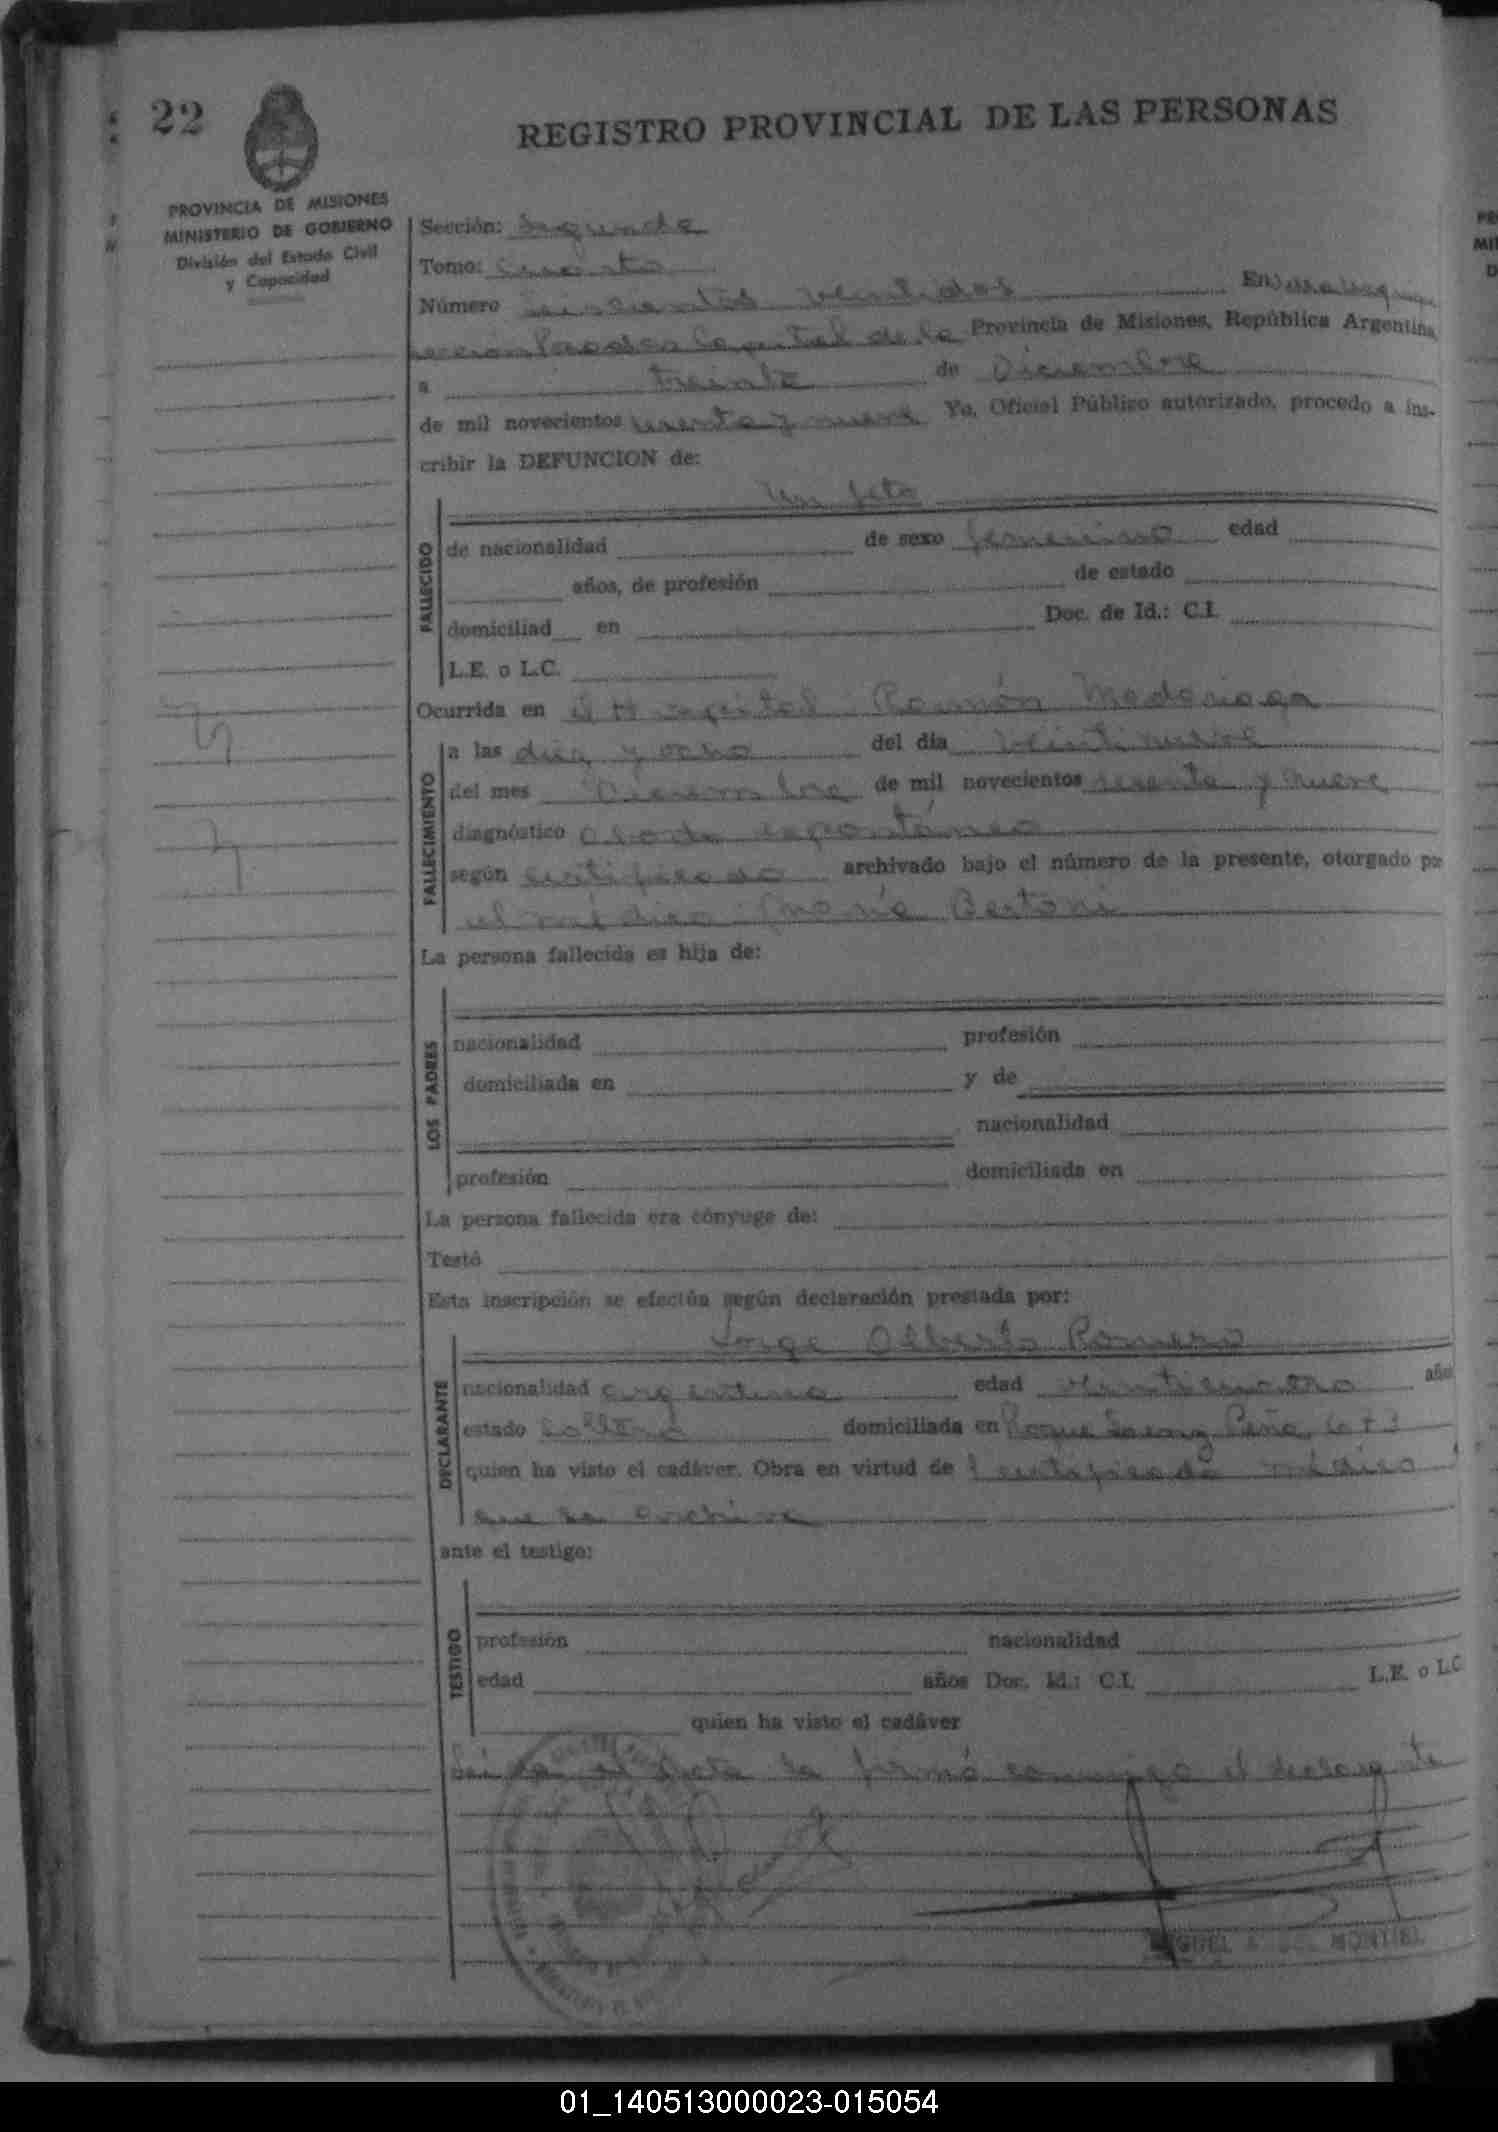 22
REGISTRO PROVINCIAL DE LAS PERSONAS
PROVINCIA DE MISIONES
MINISTERIO DE GOBIERNO
División del Estado Civil
y Capacidad
Sección: Segunda
Tomo: Cuarto
Número seiscientos veintidos En
Posadas Capital de la Provincia de Misiones, República Argentina,
a treinta de Diciembre
de mil novecientos sesenta y nueve Yo, Oficial Público autorizado, procedo a ins-
cribir la DEFUNCION de:
Un feto
FALLECIDO
de nacionalidad de sexo femenino edad
años, de profesión de estado
domiciliad en Doc. de Id.: C.I.
L.E. o L.C.
Ocurrida en el Hospital Ramón Madariaga
FALLECIMIENTO
a las diez y ocho del día veintinueve
del mes Diciembre de mil novecientos sesenta y nueve
diagnóstico aborto espontáneo
según certificado archivado bajo el número de la presente, otorgado por
el médico María Bertoni
La persona fallecida es hija de:
LOS PADRES
nacionalidad profesión
domiciliada en y de
nacionalidad
profesión domiciliada en
La persona fallecida era cónyuge de:
Testó
Esta inscripción se efectúa según declaración prestada por:
Jorge Alberto Romero
DECLARANTE
nacionalidad argentina edad veinticuatro año
estado soltero domiciliada en Roque Saenz Peña
quien ha visto el cadáver. Obra en virtud de l certificado médico
que se archiva
ante el testigo:
TESTIGO
profesión nacionalidad
edad años Doc. Id.: C.I. L.E. o L.C
quien ha visto el cadáver
Leí da el acta la firmó conmigo el declarante
MIGUEL A. DEL MONTIEL
01_140513000023-015054